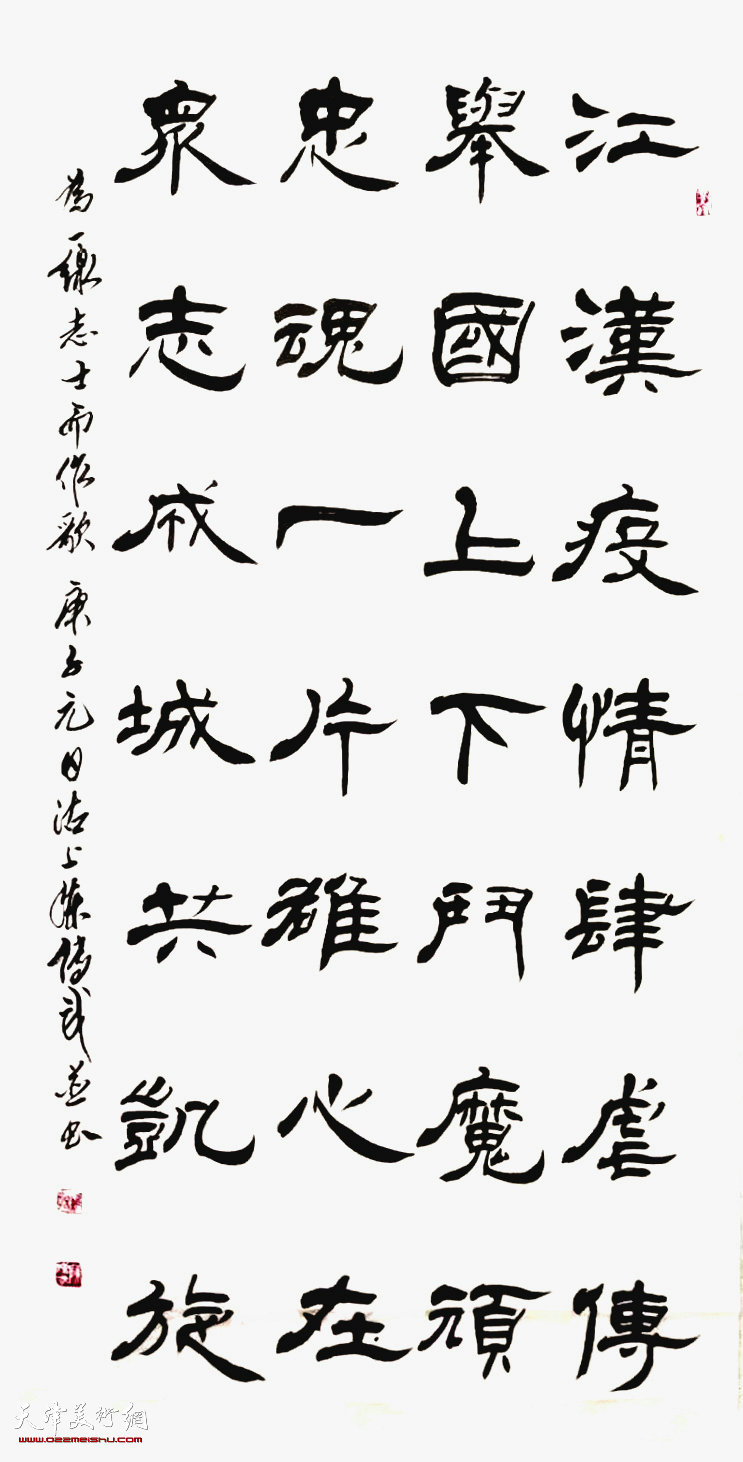 江漢疫情肆虐傳
舉國上下鬥魔頑
忠魂一片雄心在
眾志成城共凱旋
為一線志士而作歌 庚子元日沽上 傳武並書
天津美術網
www.022meishu.com